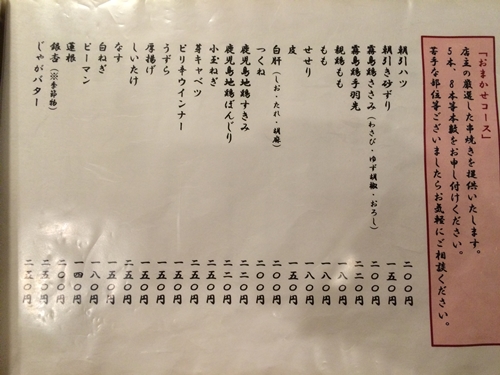 「おまかせコース」
店主の厳選した串焼きを提供いたします。
5本、8本等本数をお申し付けください。
苦手な部位等ございましたらお気軽にご相談ください。
朝引ハツ 二〇〇円
朝引き砂ずり 一五〇円
霧島鶏ささみ(わさび・ゆず胡椒・おろし) 二〇〇円
霧島鶏手羽先 二二〇円
親鶏もも 一八〇円
もも 一八〇円
せせり 一八〇円
皮 一五〇円
白肝(しお・たれ・胡麻) 二〇〇円
つくね 二〇〇円
鹿児島地鶏すきみ 二二〇円
鹿児島地鶏ぼんじり 二二〇円
小玉ねぎ 二五〇円
芽キャベツ 一五〇円
ピリ辛ウインナー 一五〇円
うずら 一五〇円
厚揚げ 一五〇円
しいたけ 二五〇円
なす 一五〇円
白ねぎ 一八〇円
ピーマン 一四〇円
蓮根 二〇〇円
銀杏(※季節物) 二五〇円
じゃがバター 二五〇円